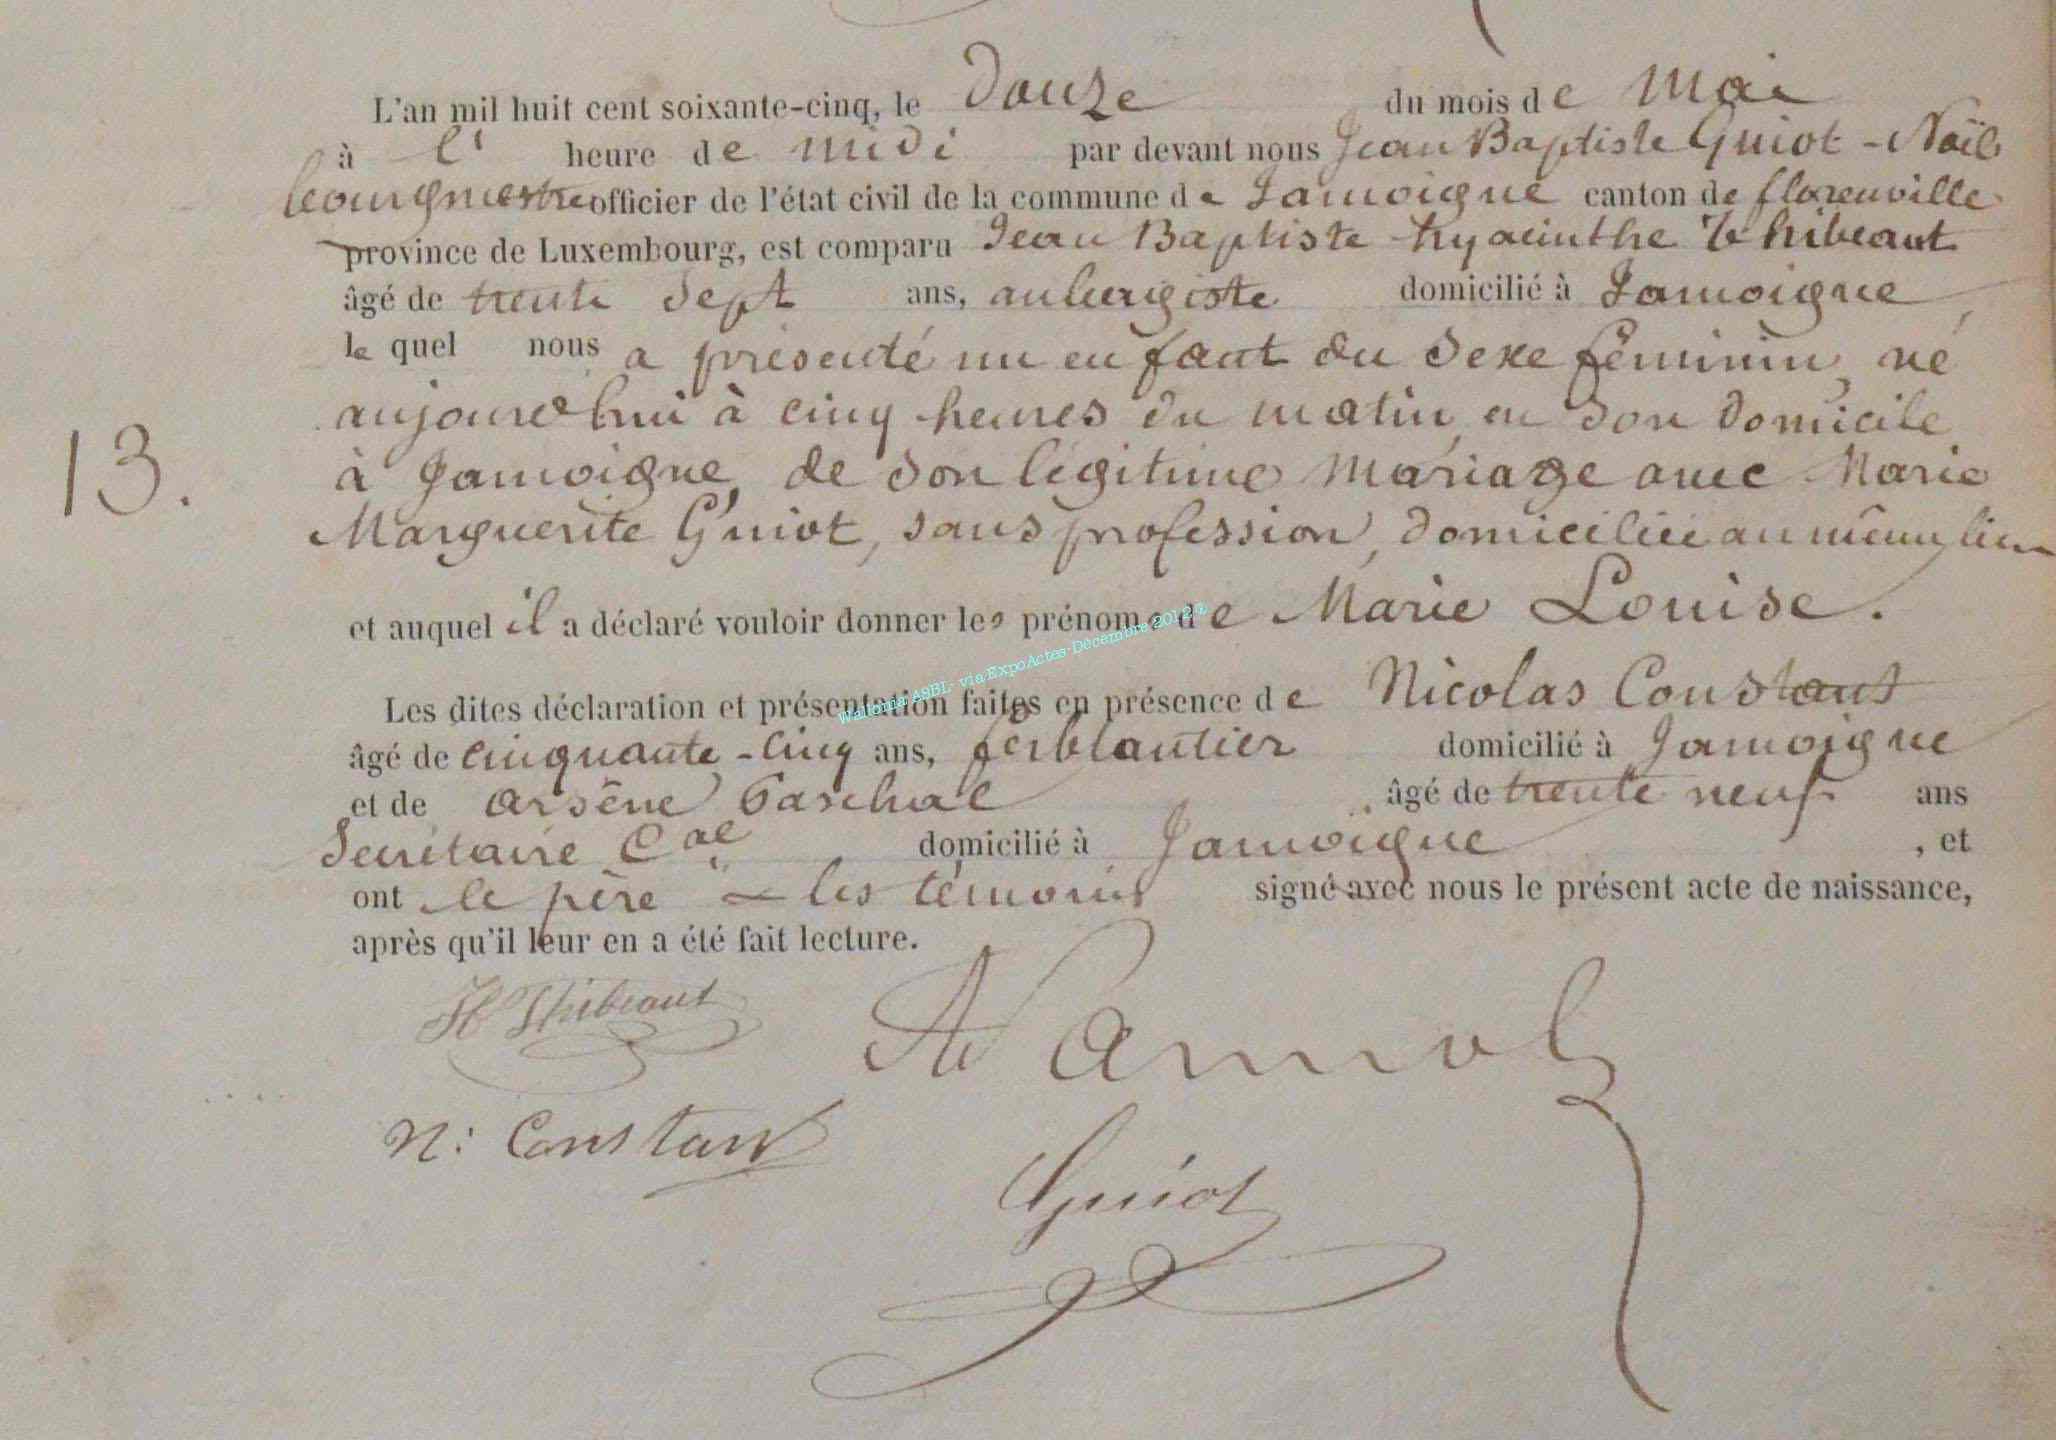 L'an mil huit cent soixante-cinq, le Douze du mois de Mai
à l' heure de midi par devant nous Jean Baptiste Guiot-Noël
bourgmestre officier de l'état civil de la commune de Jamoigne canton de florenville
province de Luxembourg, est comparu Jean Baptiste hyacinthe Thibeaut
âgé de trente sept ans, aubergiste domicilié à Jamoigne,
le quel nous a présenté un enfant du sexe féminin, né
aujourd'hui à cinq heures du matin, en son domicile
13. à Jamoigne, de son légitime mariage avec Marie
Marguerite Guiot, sans profession, domiciliée au même lieu
et auquel il a déclaré vouloir donner les prénoms de Marie Louise.
Les dites déclaration et présentation faites en présence de Nicolas Constant
âgé de cinquante-cinq ans, ferblantier domicilié à Jamoigne
et de Arsène Paschal âgé de trente neuf ans
Secrétaire Cal domicilié à Jamoigne, et
ont le père et les témoins signé avec nous le présent acte de naissance,
après qu'il leur en a été fait lecture.
Wallonia ASBL- via ExpoActes-Décembre 2012
H Thibeaut
N: Constant
Guiot